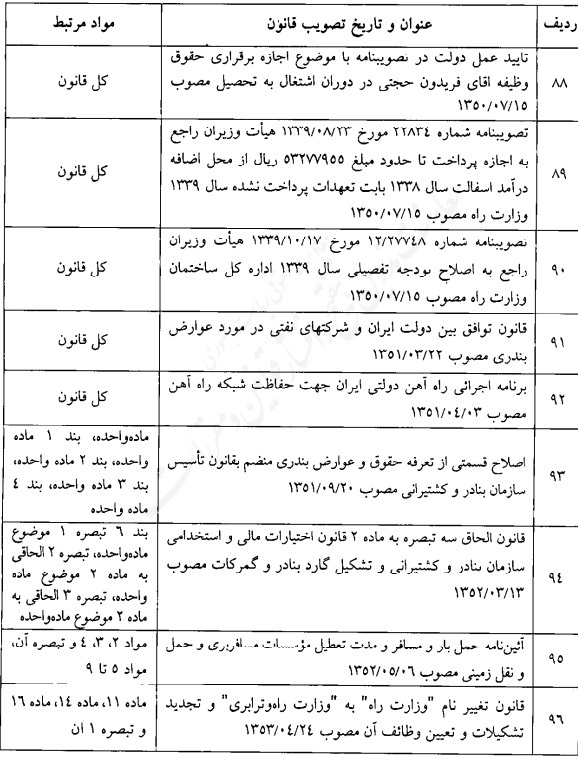 ردیف
عنوان و تاریخ تصویب قانون
مواد مرتبط
۸۸
تایید عمل دولت در تصویبنامه با موضوع اجازه برقراری حقوق
وظیفه اقای فریدون حجتی در دوران اشتغال به تحصیل مصوب
۱۳۵۰/۰۷/۱۵
کل قانون
۸۹
تصویبنامه شماره ۲۲۸۳٤ مورخ ۱۳۳۹/۰۸/۲۳ هیأت وزیران راجع
به اجازه پرداخت تا حدود مبلغ ۵۳۲۷۷۹۵۵ ریال از محل اضافه
درآمد اسفالت سال ۱۳۳۸ بابت تعهدات پرداخت نشده سال ۱۳۳۹
وزارت راه مصوب ۱۳۵۰/۰۷/۱۵
کل قانون
۹۰
تصویبنامه شماره ۱۲/۲۷۷٤۸ مورخ ۱۳۳۹/۱۰/۱۷ هیأت وزیران
راجع به اصلاح بودجه تفصیلی سال ۱۳۳۹ اداره کل ساختمان
وزارت راه مصوب ۱۳۵۰/۰۷/۱۵
کل قانون
۹۱
قانون توافق بین دولت ایران و شرکتهای نفتی در مورد عوارض
بندری مصوب ۱۳۵۱/۰۳/۲۲
کل قانون
۹۲
برنامه اجرائی راه آهن دولتی ایران جهت حفاظت شبکه راه آهن
مصوب ۱۳۵۱/۰٤/۰۳
کل قانون
۹۳
اصلاح قسمتی از تعرفه حقوق و عوارض بندری منضم بقانون تأسیس
سازمان بنادر و کشتیرانی مصوب ۱۳۵۱/۰۹/۲۰
ماده‌واحده، بند ۱ ماده
واحده، بند ۲ ماده واحده،
بند ۳ ماده واحده، بند ٤
ماده واحده
۹٤
قانون الحاق سه تبصره به ماده ۲ قانون اختیارات مالی و استخدامی
سازمان بنادر و کشتیرانی و تشکیل گارد بنادر و گمرکات مصوب
۱۳۵۲/۰۳/۱۳
بند ٦ تبصره ۱ موضوع
ماده‌واحده، تبصره ۲ الحاقی
به ماده ۲ موضوع ماده
واحده، تبصره ۳ الحاقی به
ماده ۲ موضوع ماده‌واحده
۹۵
آئین‌نامه حمل بار و مسافر و مدت تعطیل مؤسسات مسافربری و حمل
و نقل زمینی مصوب ۱۳۵۲/۰۵/۰۶
مواد ۲، ۳، ٤ و تبصره آن،
مواد ۵ تا ۹
۹٦
قانون تغییر نام "وزارت راه" به "وزارت راه‌وترابری" و تجدید
تشکیلات و تعیین وظائف آن مصوب ۱۳۵۳/۰٤/۲٤
ماده ۱۱، ماده ۱٤، ماده ۱٦
و تبصره ۱ ان